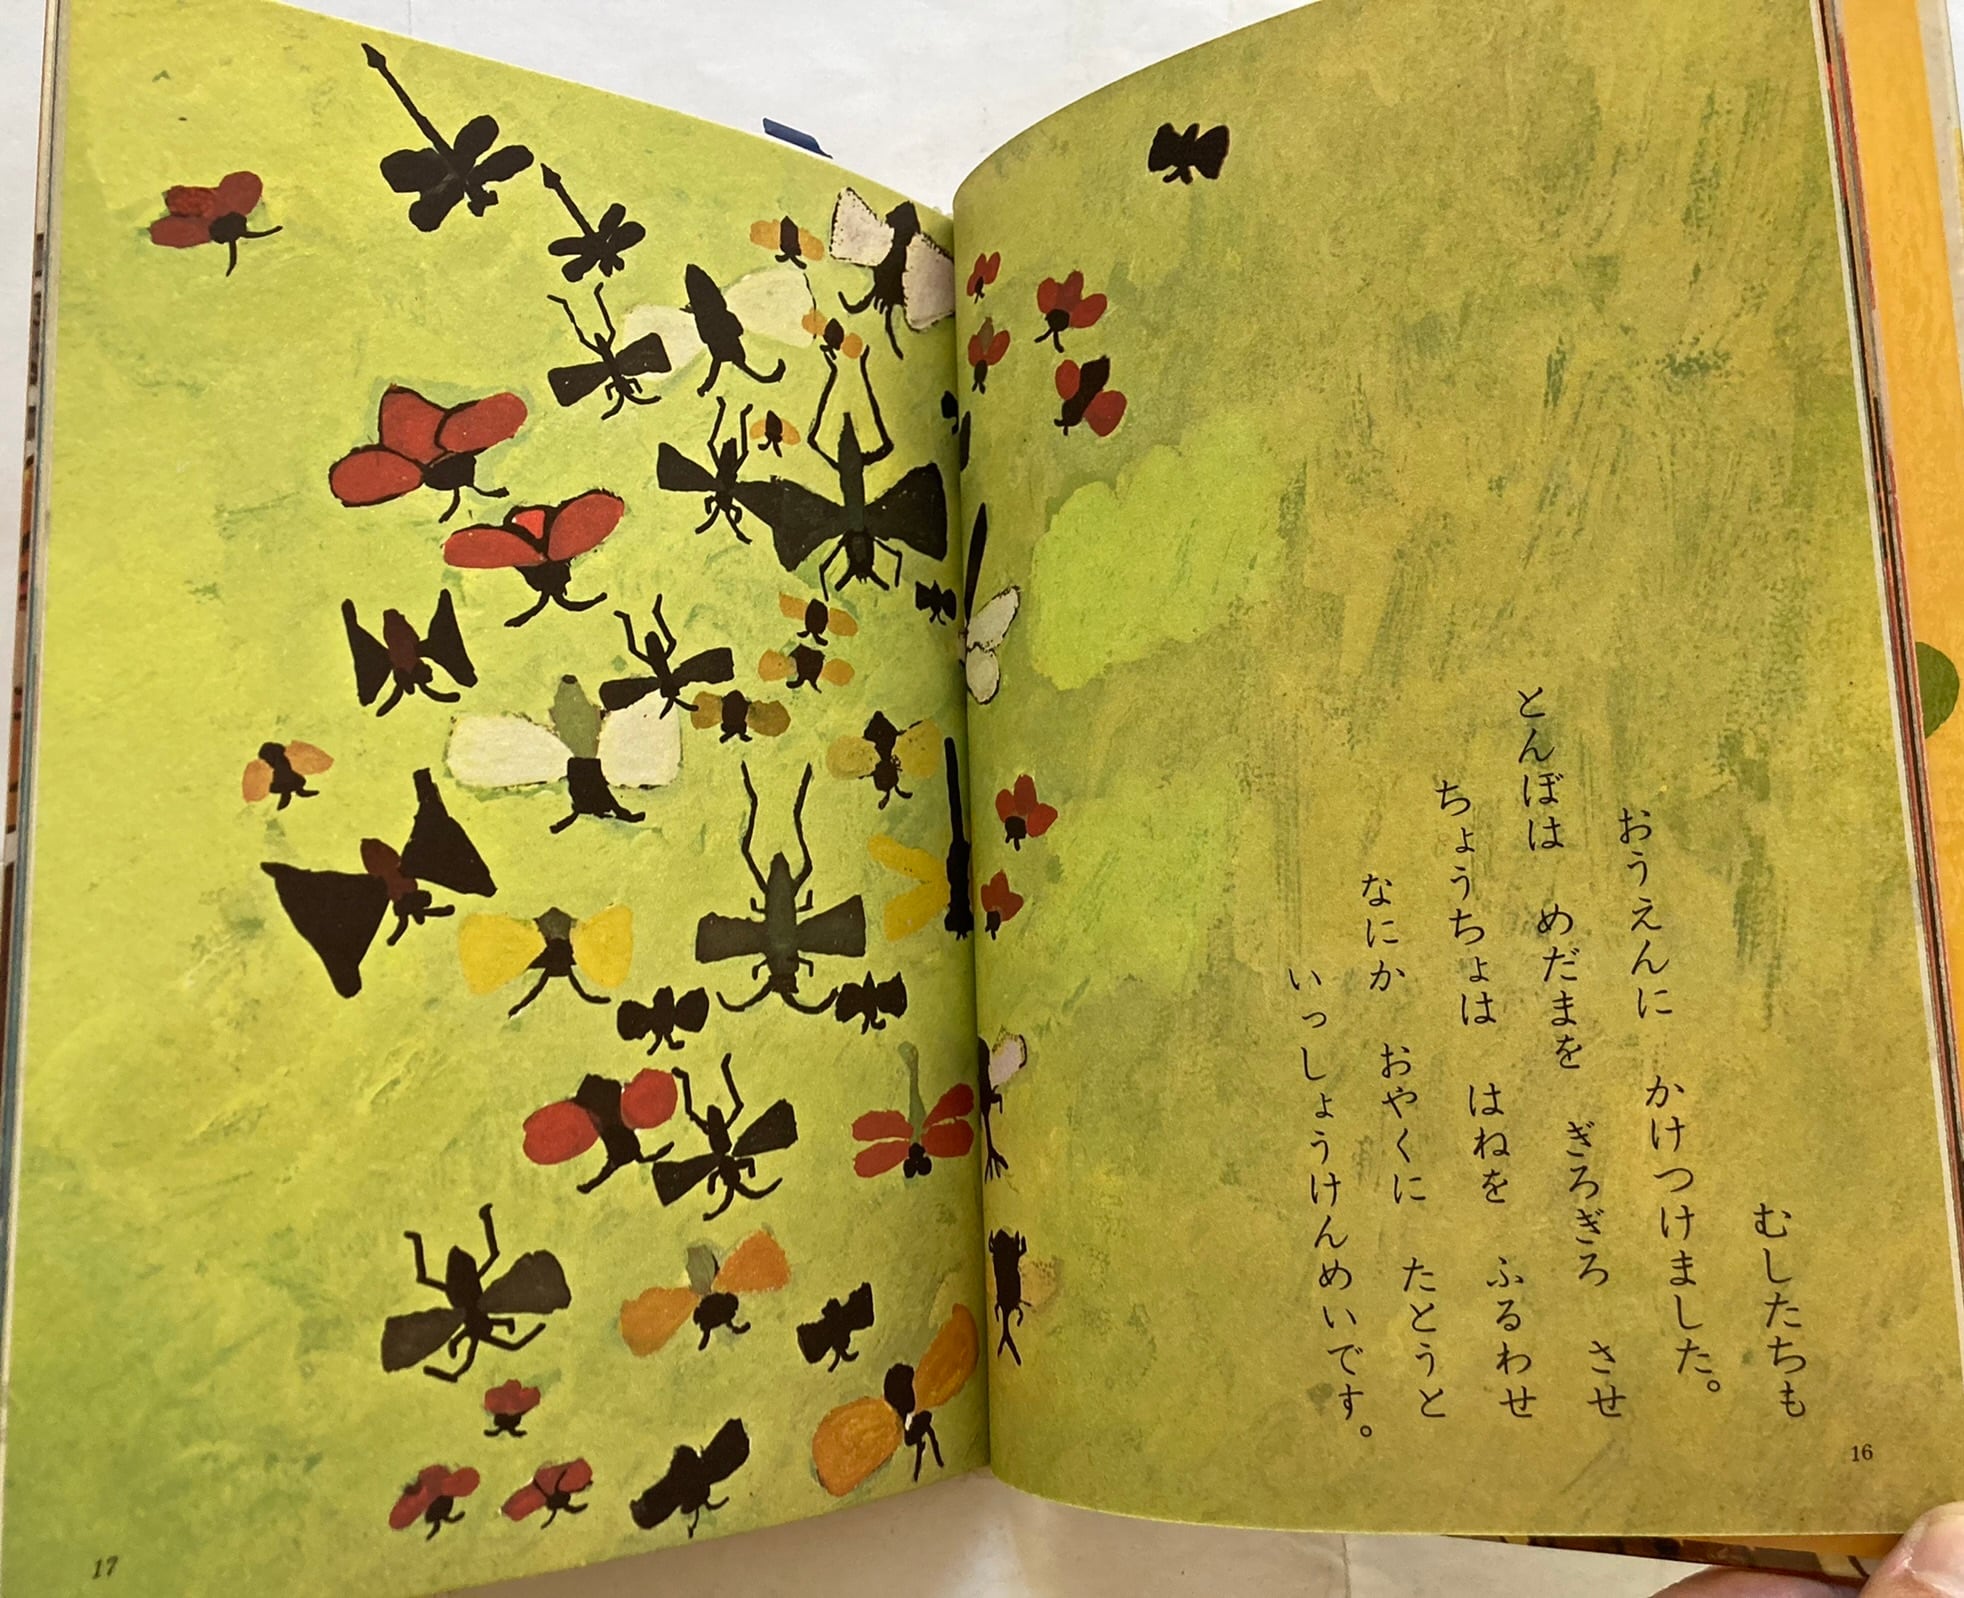 むしたちも
おうえんに かけつけました。
とんぼは めだまを ぎろぎろ させ
ちょうちょは はねを ふるわせ
なにか おやくに たとうと
いっしょうけんめいです。
16
17